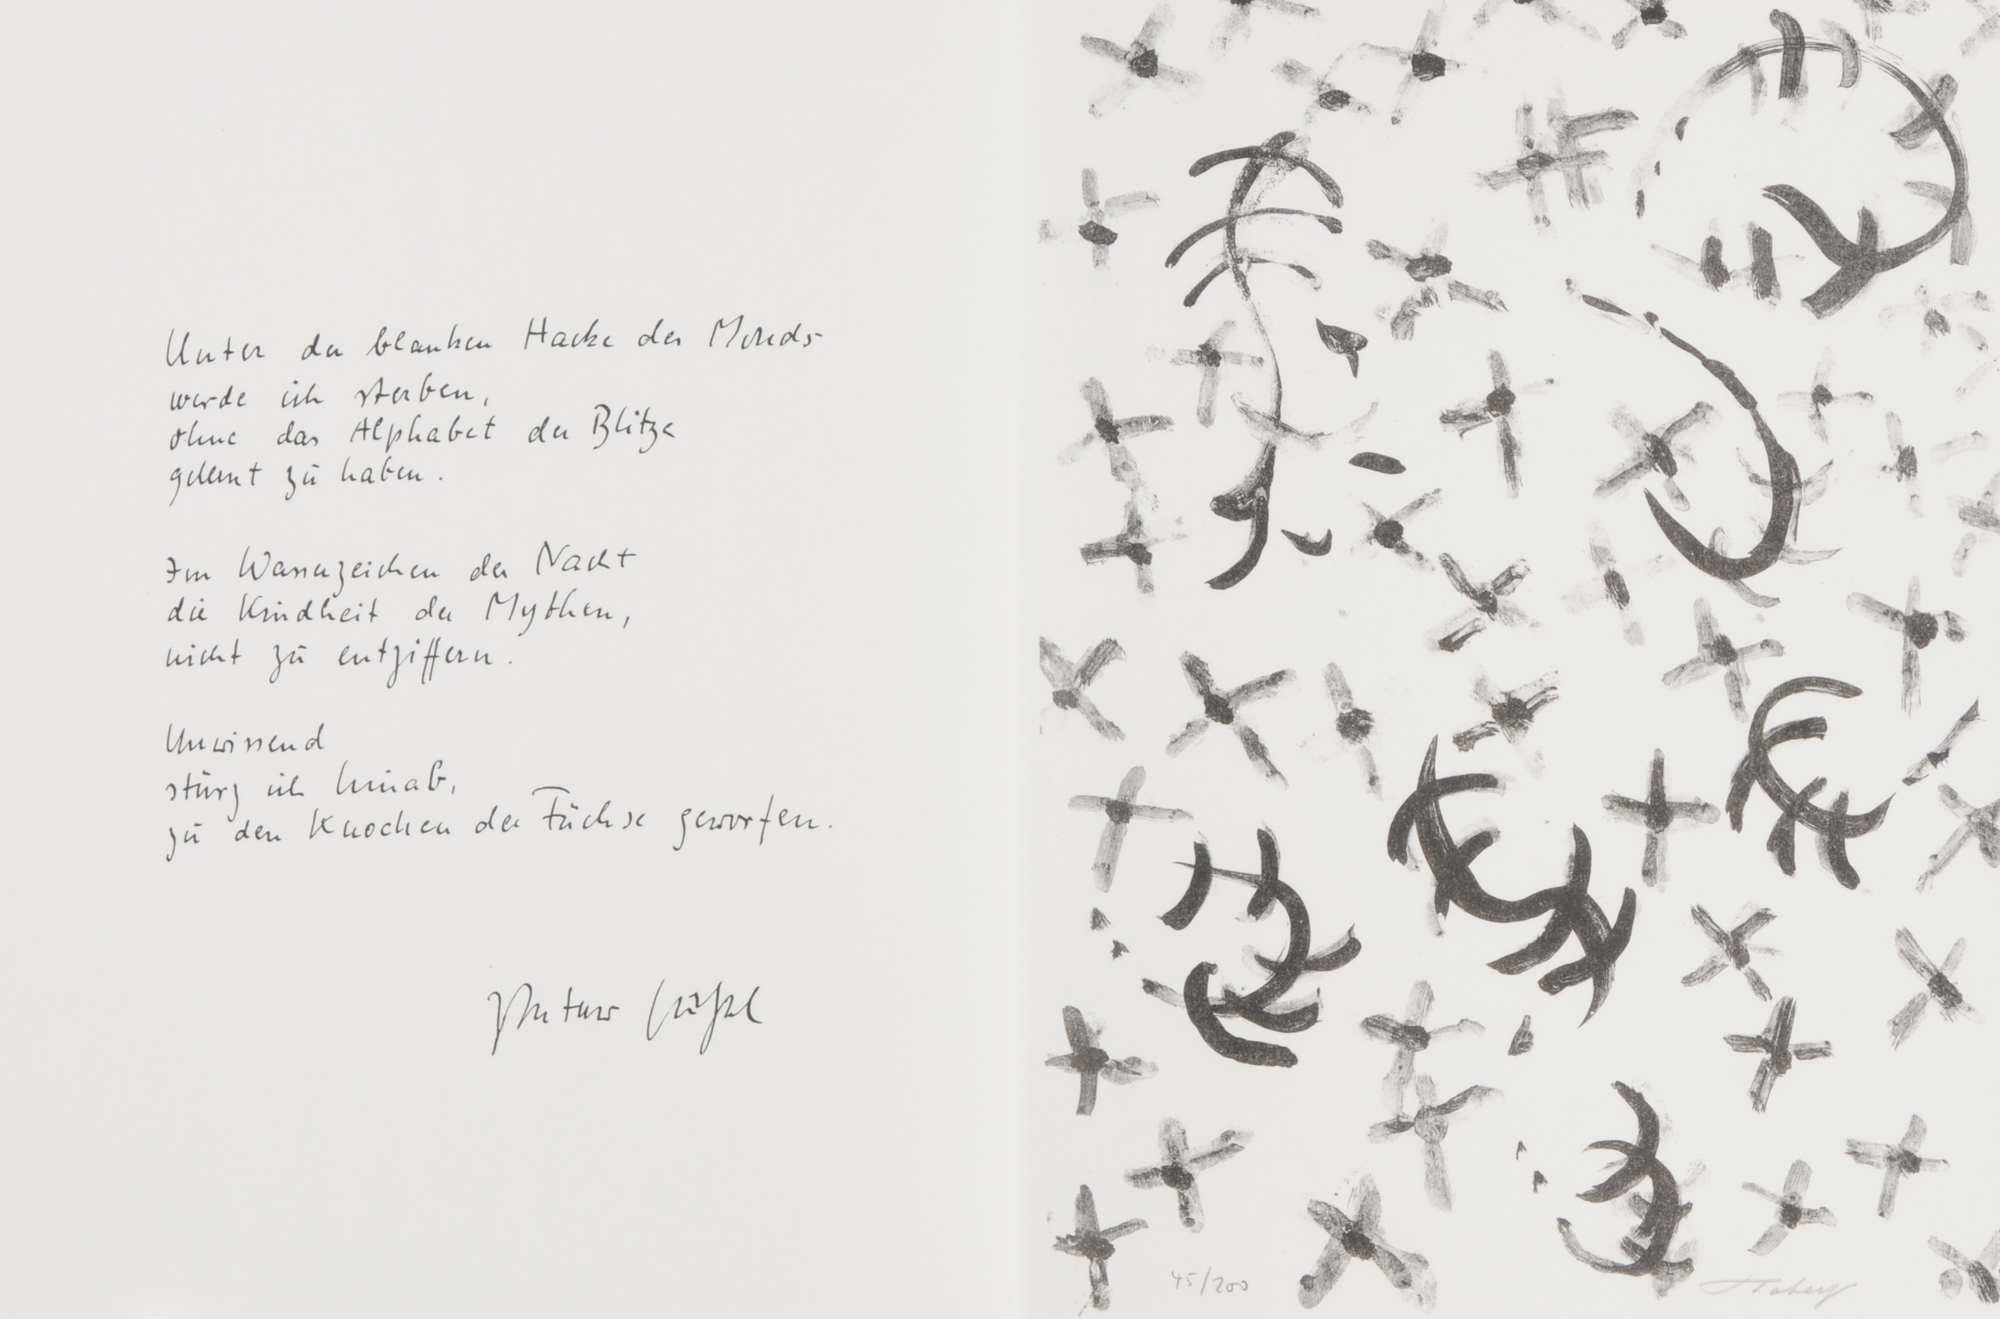 Unter der blanken Hacke des Monds
werde ich sterben,
ohne das Alphabet der Blitze
gelernt zu haben.
Im Wasserzeichen der Nacht
die Kindheit der Mythen,
nicht zu entziffern.
Unwissend
stürz ich hinab,
zu den Knochen der Füchse geworfen.
45/200